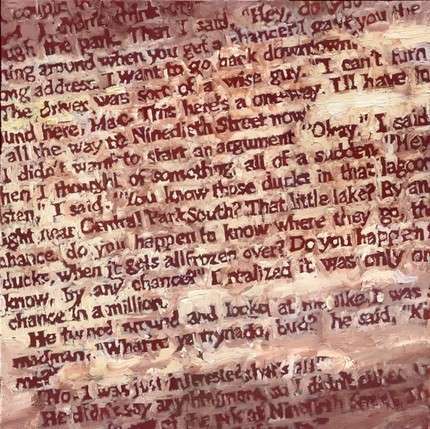 think
the park. Then I said, "Hey, do you
ing around when you get a chance? I gave you the
ong address. I want to go back downtown.
The driver was sort of a wise guy. "I can't turn
und here, Mac. This here's a one-way. I'll have to
all the way to Ninedieth Street now."
I didn't want to start an argument. "Okay," I said.
hen I thought of something, all of a sudden. "Hey,
isten," I said. "You know those ducks in that lagoon
ight near Central Park South? That little lake? By any
chance, do you happen to know where they go, the
ducks, when it gets all frozen over? Do you happen
know, by any chance?" I realized it was only one
chance in a million.
He turned around and looked at me like I was
madman. "What're ya tryna do, bud?" he said. "Kid
me?"
"No. I was just interested, that's all."
He didn't say anything more, so I didn't either.
at Ninetieth Street.